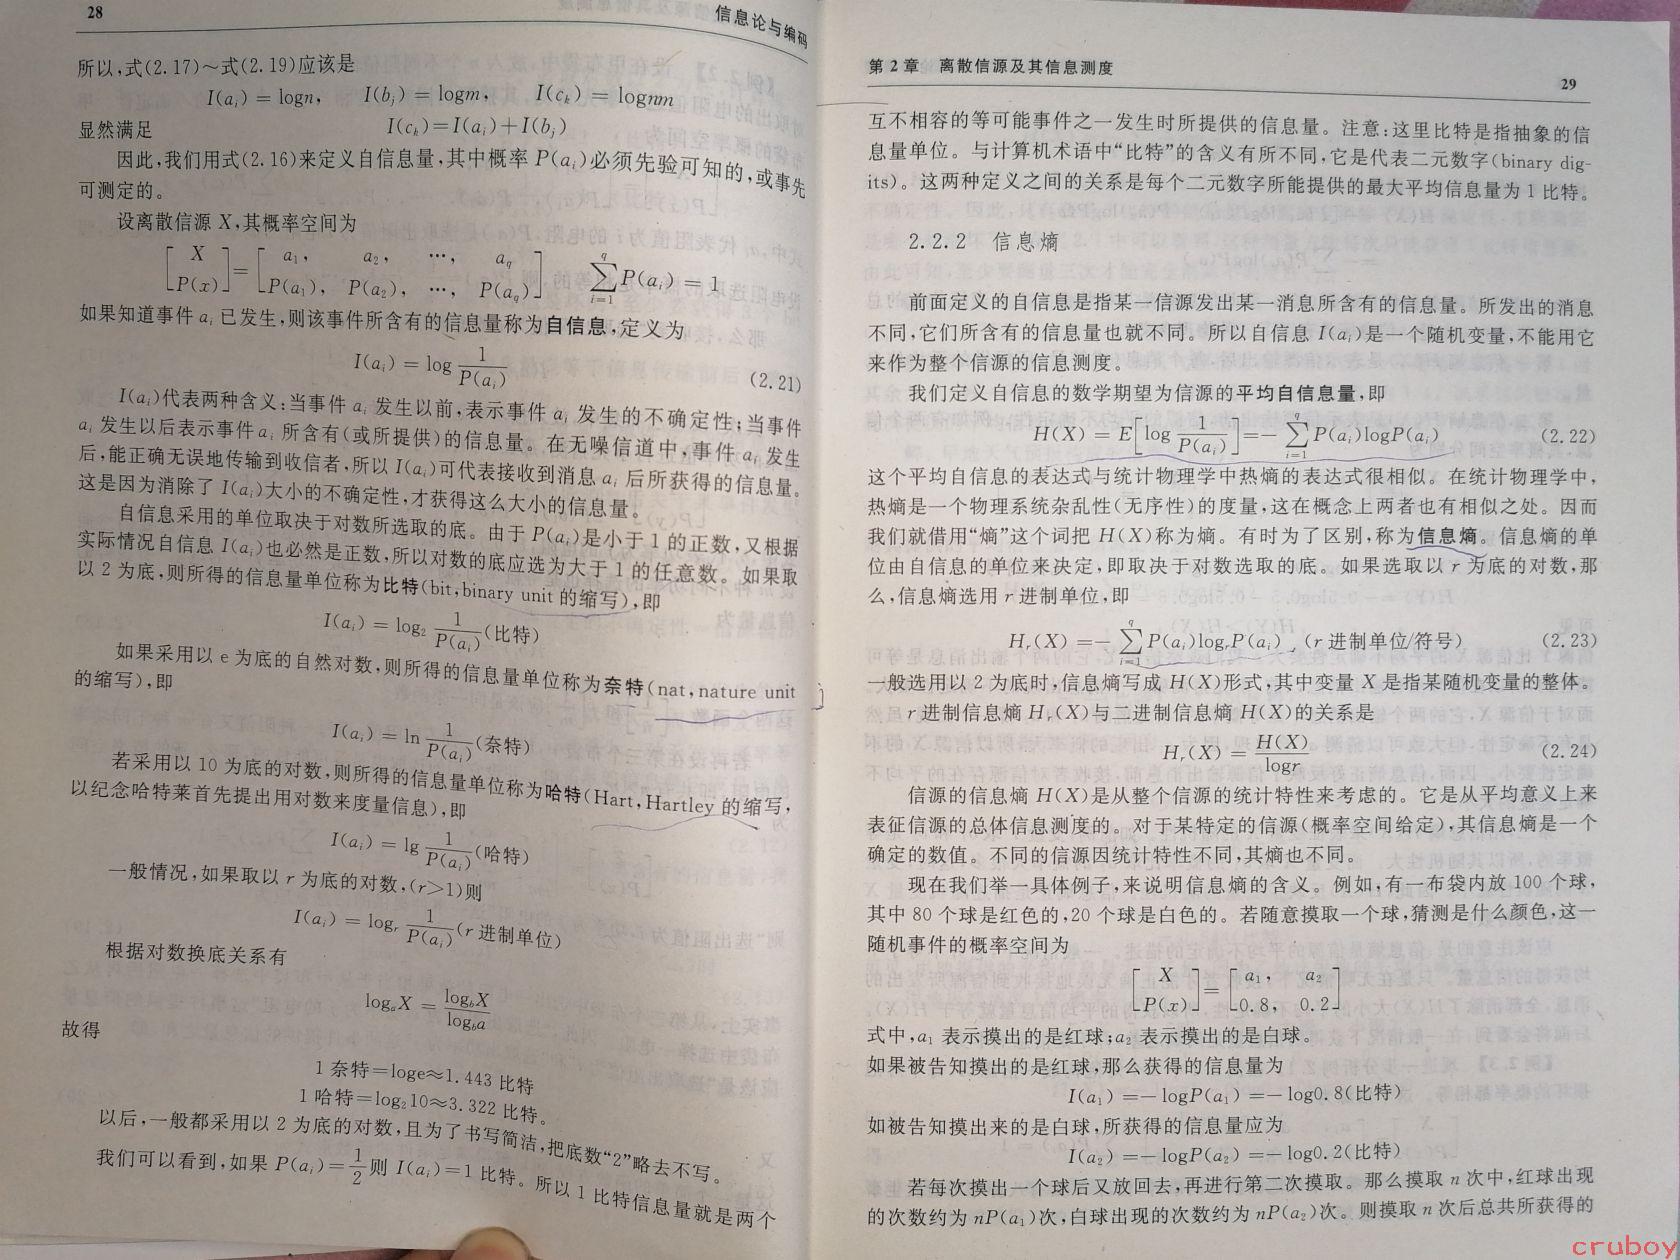 28
信息论与编码
所以,式(2.17)~式(2.19)应该是
I(aᵢ) = logn, I(bⱼ) = logm, I(cₖ) = lognm
显然满足 I(cₖ)=I(aᵢ)+I(bⱼ)
因此,我们用式(2.16)来定义自信息量,其中概率 P(aᵢ)必须先验可知的,或事先
可测定的。
设离散信源 X,其概率空间为
[X P(x)] = [a₁, a₂, …, a_q P(a₁), P(a₂), …, P(a_q)] ∑_{i=1}^{q} P(aᵢ) = 1
如果知道事件 aᵢ 已发生,则该事件所含有的信息量称为自信息,定义为
I(aᵢ) = log 1/P(aᵢ) (2.21)
I(aᵢ)代表两种含义:当事件 aᵢ 发生以前,表示事件 aᵢ 发生的不确定性;当事件
aᵢ 发生以后表示事件 aᵢ 所含有(或所提供)的信息量。在无噪信道中,事件 aᵢ 发生
后,能正确无误地传输到收信者,所以 I(aᵢ)可代表接收到消息 aᵢ 后所获得的信息量。
这是因为消除了 I(aᵢ)大小的不确定性,才获得这么大小的信息量。
自信息采用的单位取决于对数所选取的底。由于 P(aᵢ)是小于 1 的正数,又根据
实际情况自信息 I(aᵢ)也必然是正数,所以对数的底应选为大于 1 的任意数。如果取
以 2 为底,则所得的信息量单位称为比特(bit,binary unit 的缩写),即
I(aᵢ) = log₂ 1/P(aᵢ) (比特)
如果采用以 e 为底的自然对数,则所得的信息量单位称为奈特(nat,nature unit
的缩写),即
I(aᵢ) = ln 1/P(aᵢ) (奈特)
若采用以 10 为底的对数,则所得的信息量单位称为哈特(Hart,Hartley 的缩写,
以纪念哈特莱首先提出用对数来度量信息),即
I(aᵢ) = lg 1/P(aᵢ) (哈特)
一般情况,如果取以 r 为底的对数,(r>1)则
I(aᵢ) = logᵣ 1/P(aᵢ) (r 进制单位)
根据对数换底关系有
logₐX = log_bX/log_ba
故得
1 奈特=loge≈1.443 比特
1 哈特=log₂10≈3.322 比特。
以后,一般都采用以 2 为底的对数,且为了书写简洁,把底数“2”略去不写。
我们可以看到,如果 P(aᵢ)=1/2 则 I(aᵢ)=1 比特。所以 1 比特信息量就是两个
第 2 章 离散信源及其信息测度
29
互不相容的等可能事件之一发生时所提供的信息量。注意:这里比特是指抽象的信
息量单位。与计算机术语中“比特”的含义有所不同,它是代表二元数字(binary dig-
its)。这两种定义之间的关系是每个二元数字所能提供的最大平均信息量为 1 比特。
2.2.2 信息熵
前面定义的自信息是指某一信源发出某一消息所含有的信息量。所发出的消息
不同,它们所含有的信息量也就不同。所以自信息 I(aᵢ)是一个随机变量,不能用它
来作为整个信源的信息测度。
我们定义自信息的数学期望为信源的平均自信息量,即
H(X) = E[log 1/P(aᵢ)] =− ∑_{i=1}^{q} P(aᵢ)logP(aᵢ) (2.22)
这个平均自信息的表达式与统计物理学中热熵的表达式很相似。在统计物理学中,
热熵是一个物理系统杂乱性(无序性)的度量,这在概念上两者也有相似之处。因而
我们就借用“熵”这个词把 H(X)称为熵。有时为了区别,称为信息熵。信息熵的单
位由自信息的单位来决定,即取决于对数选取的底。如果选取以 r 为底的对数,那
么,信息熵选用 r 进制单位,即
Hᵣ(X) =− ∑_{i=1}^{q} P(aᵢ)logᵣP(aᵢ) (r 进制单位/符号) (2.23)
一般选用以 2 为底时,信息熵写成 H(X)形式,其中变量 X 是指某随机变量的整体。
r 进制信息熵 Hᵣ(X)与二进制信息熵 H(X)的关系是
Hᵣ(X) = H(X)/logr (2.24)
信源的信息熵 H(X)是从整个信源的统计特性来考虑的。它是从平均意义上来
表征信源的总体信息测度的。对于某特定的信源(概率空间给定),其信息熵是一个
确定的数值。不同的信源因统计特性不同,其熵也不同。
现在我们举一具体例子,来说明信息熵的含义。例如,有一布袋内放 100 个球,
其中 80 个球是红色的,20 个球是白色的。若随意摸取一个球,猜测是什么颜色,这一
随机事件的概率空间为
[X P(x)] = [a₁, a₂ 0.8, 0.2]
式中,a₁ 表示摸出的是红球;a₂ 表示摸出的是白球。
如果被告知摸出的是红球,那么获得的信息量为
I(a₁) =− logP(a₁) =− log0.8(比特)
如被告知摸出来的是白球,所获得的信息量应为
I(a₂) =− logP(a₂) =− log0.2(比特)
若每次摸出一个球后又放回去,再进行第二次摸取。那么摸取 n 次中,红球出现
的次数约为 nP(a₁)次,白球出现的次数约为 nP(a₂)次。则摸取 n 次后总共所获得的
cruboy